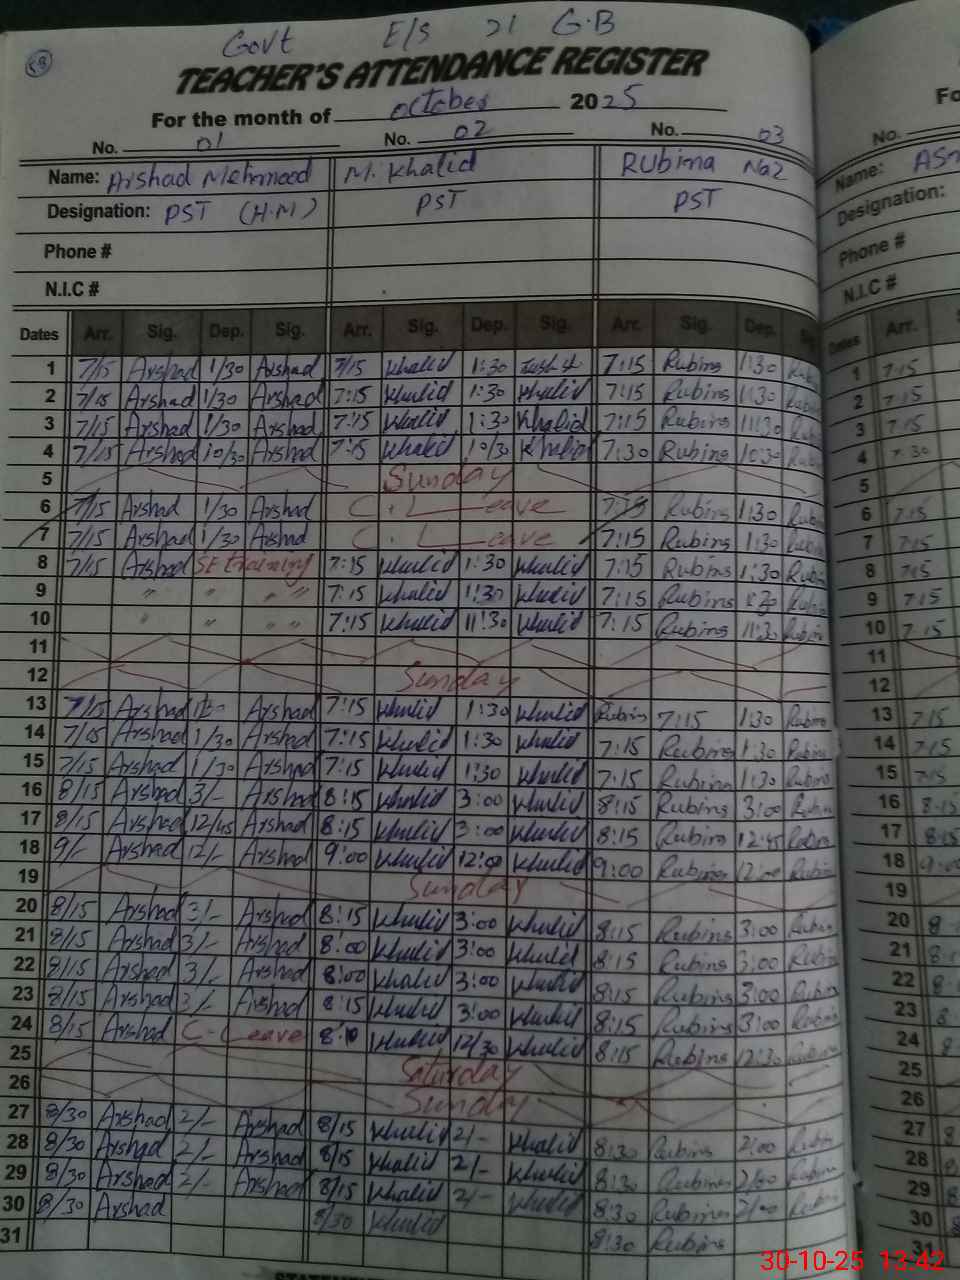 58
Govt E/S 21 G.B
TEACHER'S ATTENDANCE REGISTER
For the month of October 2025
No. 01 No. 02 No. 03 No.
Name: Arshad Mehmood M. Khalid Rubina Naz Name:
Designation: PST (H.M) PST PST Designation:
Phone # Phone #
N.I.C # N.I.C #
Dates Arr. Sig. Dep. Sig. Arr. Sig. Dep. Sig. Arr. Sig. Dep. Dates Arr.
1 7/15 Arshad 1/30 Arshad 7/15 Khalid 1:30 7:15 Rubina 1:30 1 7:15
2 7/15 Arshad 1/30 Arshad 7:15 Khalid 1:30 Khalid 7:15 Rubina 1:30 2 7:15
3 7/15 Arshad 1/30 Arshad 7:15 Khalid 1:30 Khalid 7:15 Rubina 11:30 3 7:15
4 7/15 Arshad 10/30 Arshad 7:15 Khalid 10/30 Khalid 7:30 Rubina 10:30 4 7:30
5 Sunday 5
6 7/15 Arshad 1/30 Arshad C. Leave 7:15 Rubina 1:30 6 7:15
7 7/15 Arshad 1/30 Arshad C. Leave 7:15 Rubina 1:30 7 7:15
8 7/15 Arshad training 7:15 Khalid 1:30 Khalid 7:15 Rubina 1:30 8 7:15
9 " " " " 7:15 Khalid 1:30 Khalid 7:15 Rubina 1:30 9 7:15
10 " " " " 7:15 Khalid 11:30 Khalid 7:15 Rubina 11:30 10 7:15
11 11
12 Sunday 12
13 7/15 Arshad Arshad 7:15 Khalid 1:30 Khalid Rubina 7:15 1:30 Rubina 13 7:15
14 7/15 Arshad 1/30 Arshad 7:15 Khalid 1:30 Khalid 7:15 Rubina 1:30 Rubina 14 7:15
15 7/15 Arshad 1/30 Arshad 7:15 Khalid 1:30 Khalid 7:15 Rubina 1:30 Rubina 15 7:15
16 8/15 Arshad 3/- Arshad 8:15 Khalid 3:00 Khalid 8:15 Rubina 3:00 Rubina 16 8:15
17 8/15 Arshad 12/45 Arshad 8:15 Khalid 3:00 Khalid 8:15 Rubina 12:45 Rubina 17 8:15
18 9/- Arshad 12/- Arshad 9:00 Khalid 12:00 Khalid 9:00 Rubina 12:00 Rubina 18 9:00
19 Sunday 19
20 8/15 Arshad 3/- Arshad 8:15 Khalid 3:00 Khalid 8:15 Rubina 3:00 Rubina 20
21 8/15 Arshad 3/- Arshad 8:00 Khalid 3:00 Khalid 8:15 Rubina 3:00 Rubina 21
22 8/15 Arshad 3/- Arshad 8:00 Khalid 3:00 Khalid 8:15 Rubina 3:00 Rubina 22
23 8/15 Arshad 3/- Arshad 8:15 Khalid 3:00 Khalid 8:15 Rubina 3:00 Rubina 23
24 8/15 Arshad C-Leave Khalid 12/30 Khalid 8:15 Rubina 12:30 Rubina 24
25 Saturday 25
26 Sunday 26
27 8/30 Arshad 2/- Arshad 8/15 Khalid 2/- Khalid 8:30 Rubina 2:00 Rubina 27
28 8/30 Arshad 2/- Arshad 8/15 Khalid 2/- Khalid 8:30 Rubina 2:00 Rubina 28
29 8/30 Arshad 2/- Arshad 8/15 Khalid 2/- Khalid 8:30 Rubina 2:00 Rubina 29
30 8/30 Arshad 8/30 Khalid 8:30 Rubina 30
31 31
30-10-25 13:42